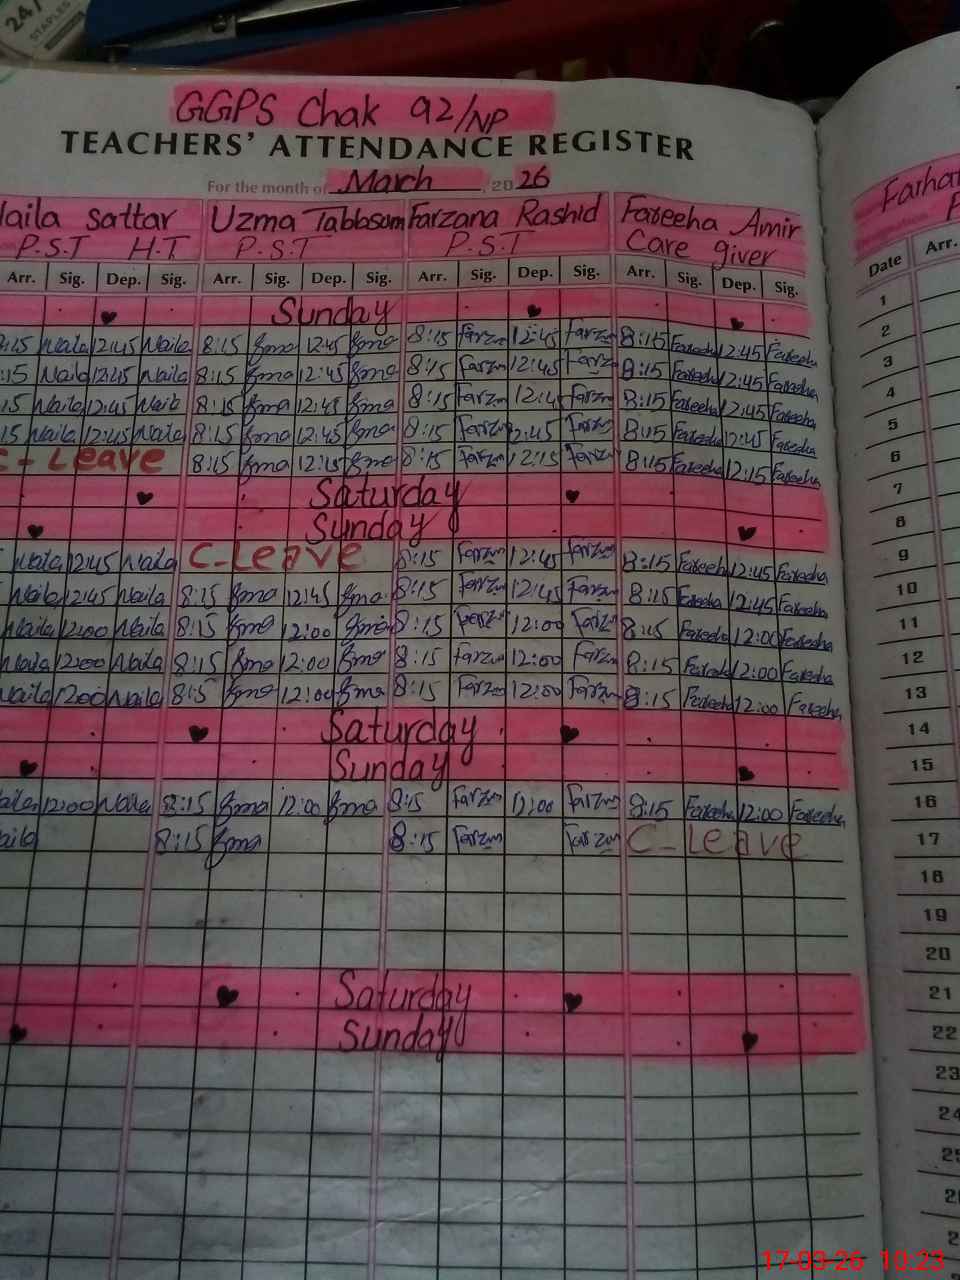 24/
STAPLES
GGPS Chak 92/NP
TEACHERS' ATTENDANCE REGISTER
For the month of March, 2026
Naila Sattar Uzma Tabbasum Farzana Rashid Fareeha Amir Farhat
P.S.T H.T P.S.T P.S.T Care giver
Arr. Sig. Dep. Sig. Arr. Sig. Dep. Sig. Arr. Sig. Dep. Sig. Arr. Sig. Dep. Sig. Date Arr.
Sunday 1
8:15 Naila 12:45 Naila 8:15 12:45 8:15 Farzan 12:45 Farzan 8:15 Fareeha 12:45 Fareeha 2
:15 Naila 12:45 Naila 8:15 12:45 8:15 Farzan 12:45 Farzan 8:15 Fareeha 12:45 Fareeha 3
15 Naila 12:45 Naila 8:15 12:45 8:15 Farzan 12:45 Farzan 8:15 Fareeha 12:45 Fareeha 4
15 Naila 12:45 Naila 8:15 12:45 8:15 Farzan 12:45 Farzan 8:15 Fareeha 12:45 Fareeha 5
C-Leave 8:15 12:15 8:15 Farzan 12:15 Farzan 8:15 Fareeha 12:15 Fareeha 6
Saturday 7
Sunday 8
Naila 12:45 Naila C-Leave 8:15 Farzan 12:45 Farzan 8:15 Fareeha 12:45 Fareeha 9
Naila 12:45 Naila 8:15 12:45 8:15 Farzan 12:45 Farzan 8:15 Fareeha 12:45 Fareeha 10
Naila 12:00 Naila 8:15 12:00 8:15 Farzan 12:00 Farzan 8:15 Fareeha 12:00 Fareeha 11
Naila 12:00 Naila 8:15 12:00 8:15 Farzan 12:00 Farzan 8:15 Fareeha 12:00 Fareeha 12
Naila 12:00 Naila 8:15 12:00 8:15 Farzan 12:00 Farzan 8:15 Fareeha 12:00 Fareeha 13
Saturday 14
Sunday 15
Naila 12:00 Naila 8:15 12:00 8:15 Farzan 12:00 Farzan 8:15 Fareeha 12:00 Fareeha 16
Naila 8:15 8:15 Farzan Farzan C-Leave 17
18
19
20
Saturday 21
Sunday 22
23
24
25
2
2
17-03-26 10:23